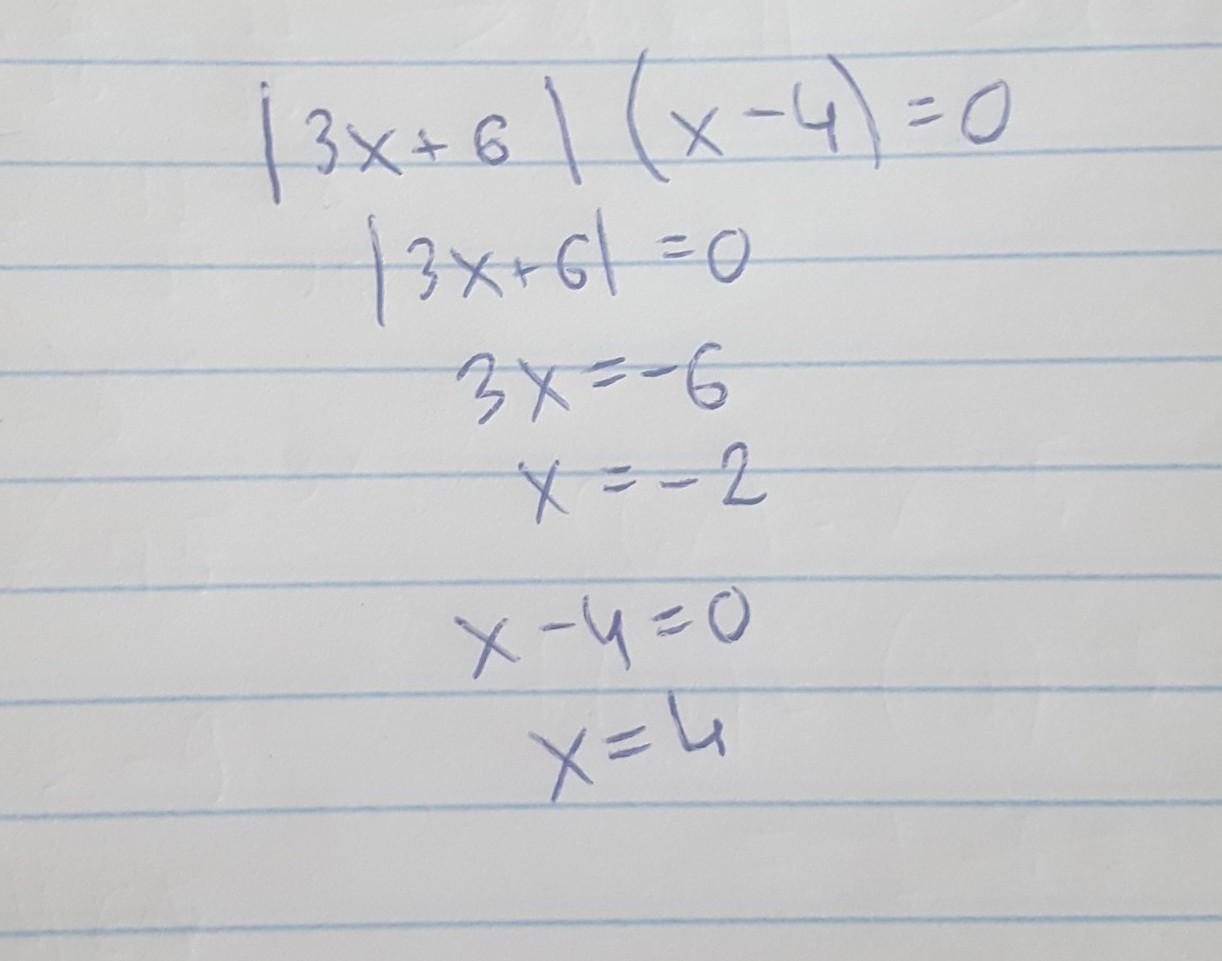 |3x+6| (x-4) = 0
|3x+6| = 0
3x = -6
x = -2
x - 4 = 0
x = 4